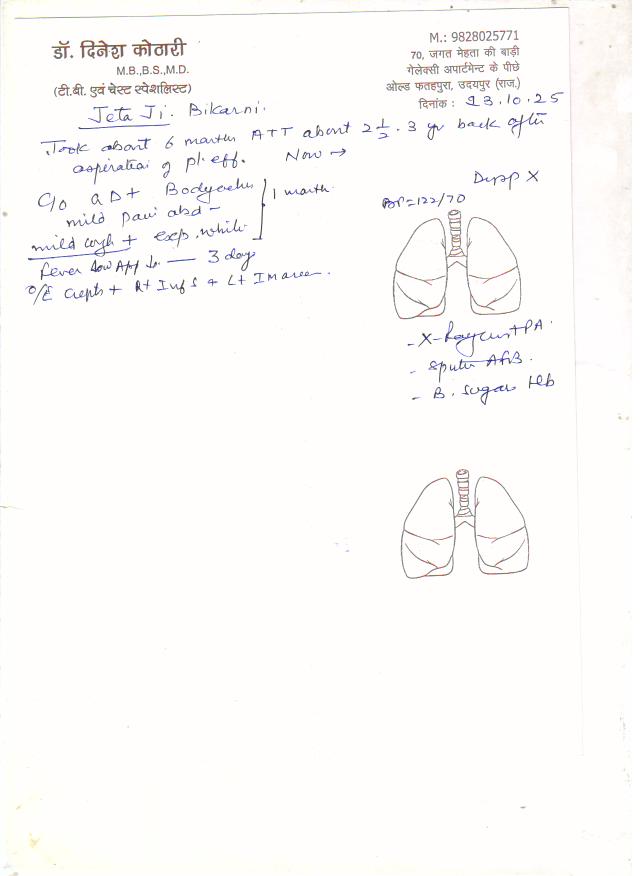 डॉ. दिनेश कोठारी
M.B.,B.S.,M.D.
(टी.बी. एवं चेस्ट स्पेशलिस्ट)
M.: 9828025771
70, जगत मेहता की बाड़ी
गेलेक्सी अपार्टमेन्ट के पीछे
ओल्ड फतहपुरा, उदयपुर (राज.)
दिनांक : 23.10.25
Jeta Ji. Bikarni.
Took about 6 months ATT about 2 1/2 . 3 yr back after
aspiration of pl. eff. Now →
C/o a D+ Bodyache
mild pain abd -
mild cough + exp. white
1 month
fever low App 3 days
O/E Crepts + Rt Inf S + Lt
Dysp X
BP=122/70
- X-Ray Chest PA
- Sputum AFB.
- B. Sugar Hb